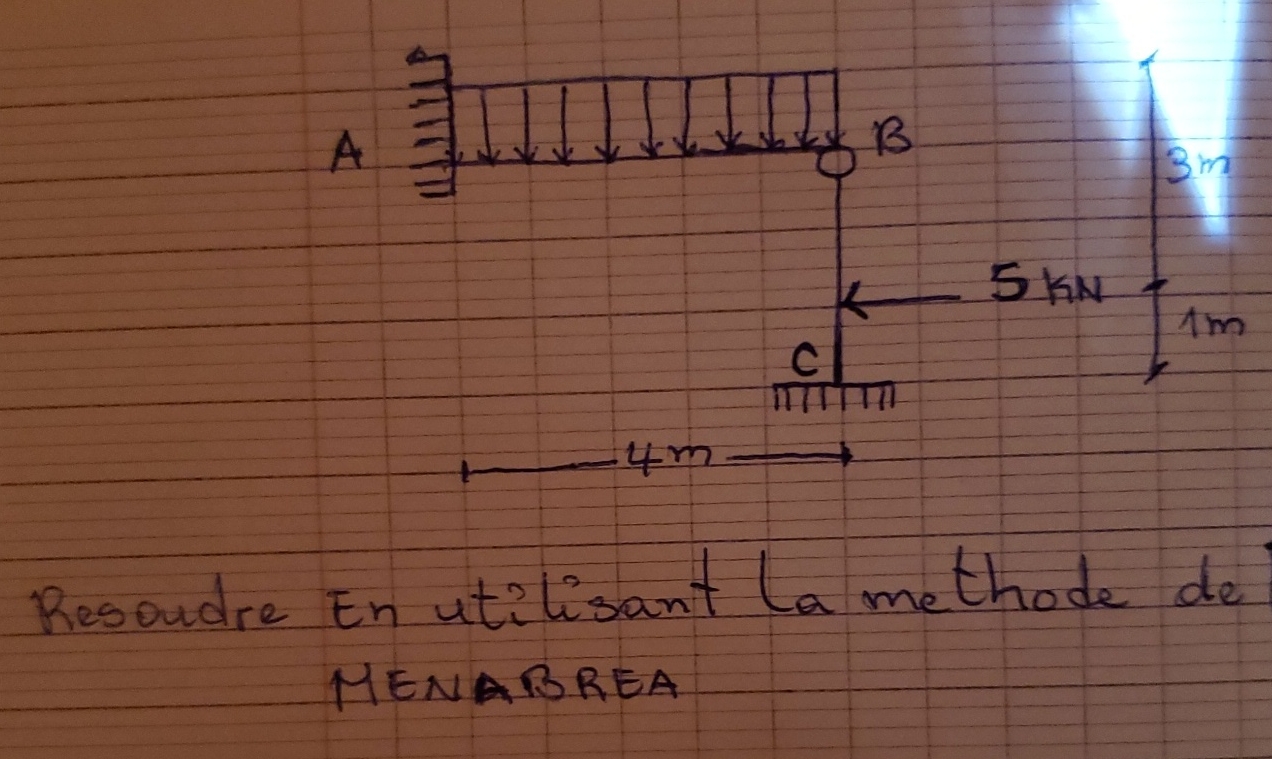 A
B
3m
5 KN
1m
C
4m
Resoudre En utilisant la methode de
MENABREA